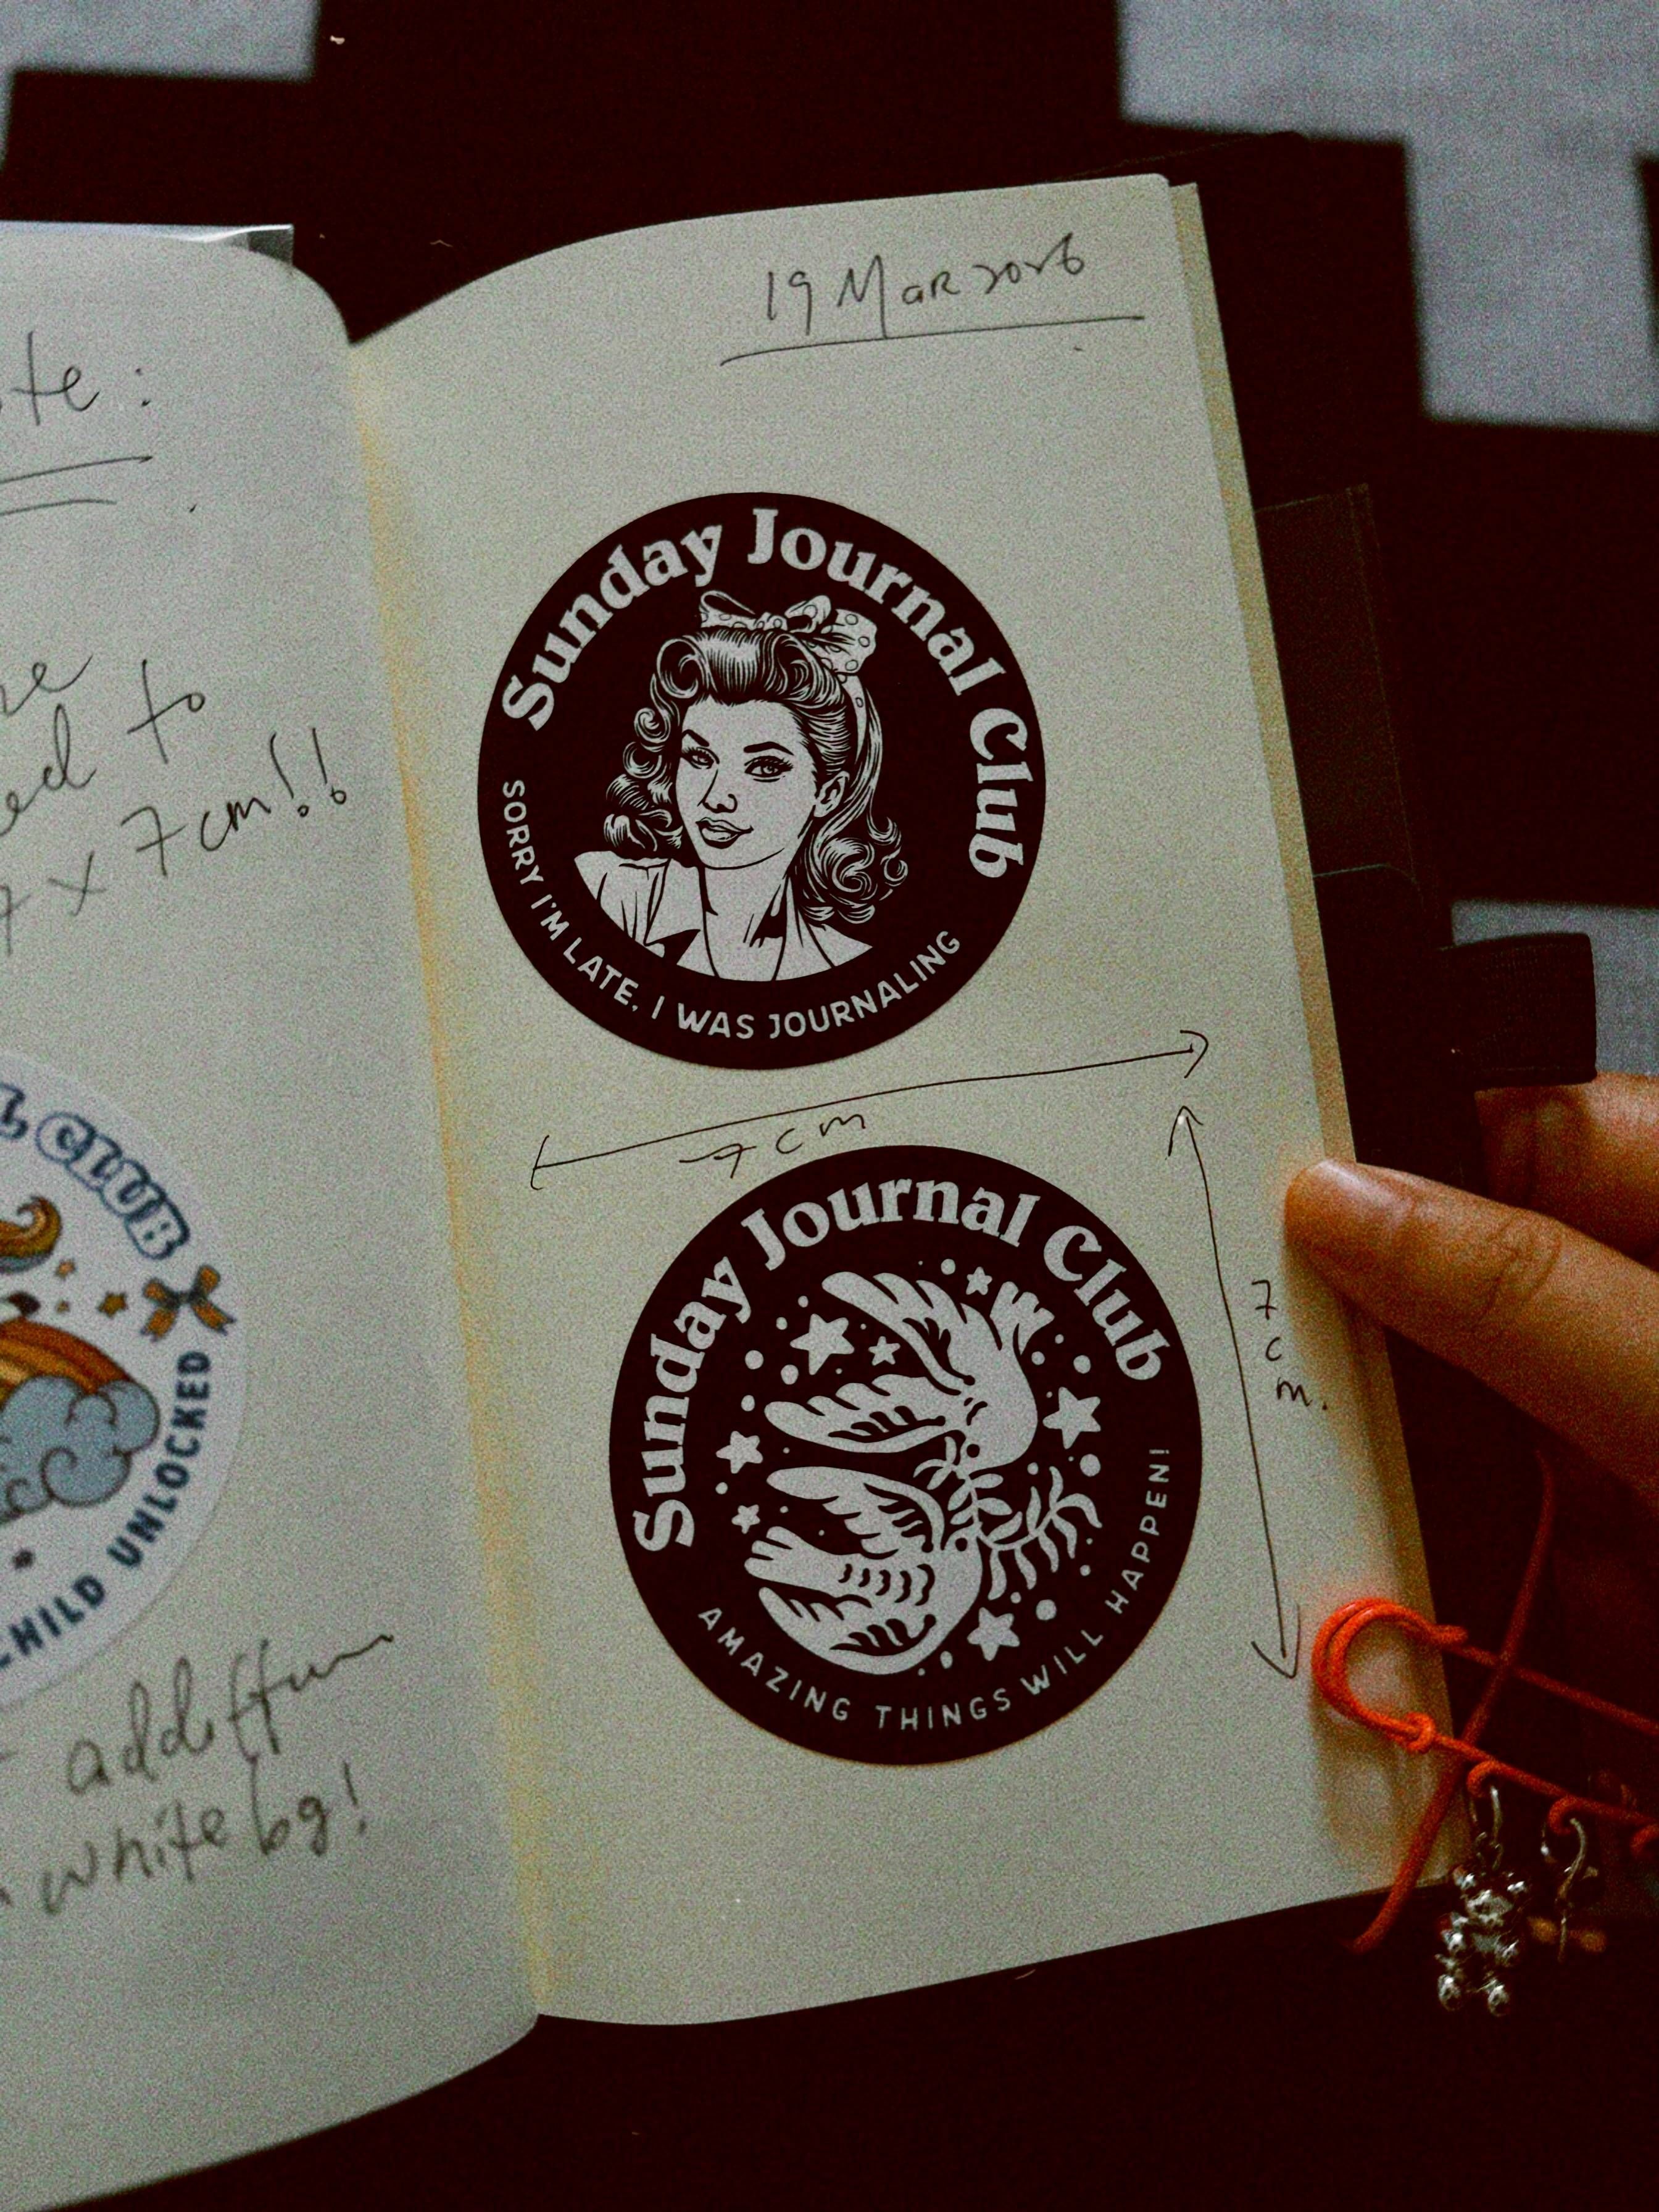 te:
ed to
7 x 7cm!!
L CLUB
CHILD UNLOCKED
white bg!
19 Mar 2026
Sunday Journal Club
SORRY I'M LATE, I WAS JOURNALING
7 cm
Sunday Journal Club
AMAZING THINGS WILL HAPPEN!
7 cm.